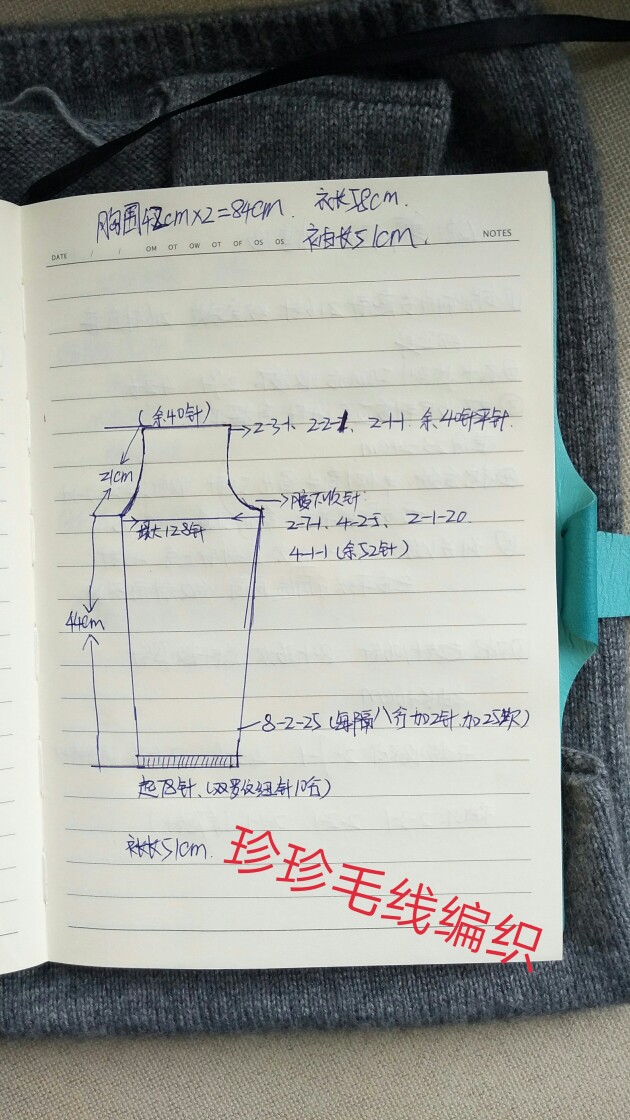 胸围42cm×2=84cm. 衣长58cm.
袖长51cm.
DATE / / OM OT OW OT OF OS OS NOTES
(余40针)
2-3-1、2-2-1、2-1-1 余40针平针
21cm
腋下收针
最大128针
2-7-1、4-2-5、2-1-20
4-1-1(余52针)
44cm
8-2-25(每隔八行加2针,加25次)
起78针、(双罗纹纽针10行)
衣长51cm.
珍珍毛线编织